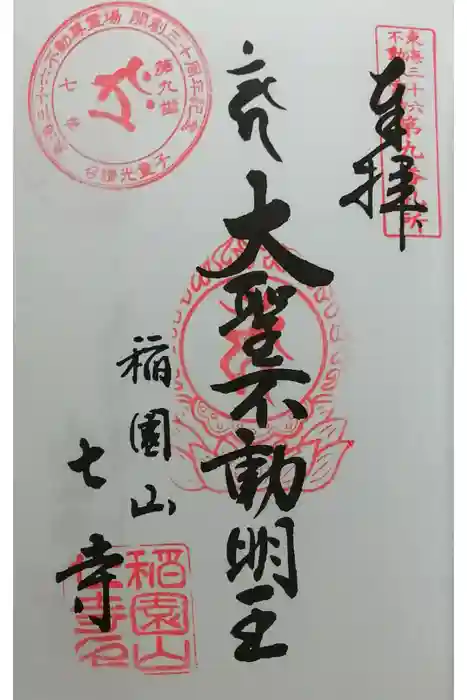 東海三十六
不動尊第九番札所
奉拝
大聖不動明王
稲園山
七寺
東海三十六不動尊霊場 開創三十周年記念
第九番
七寺
稲園山